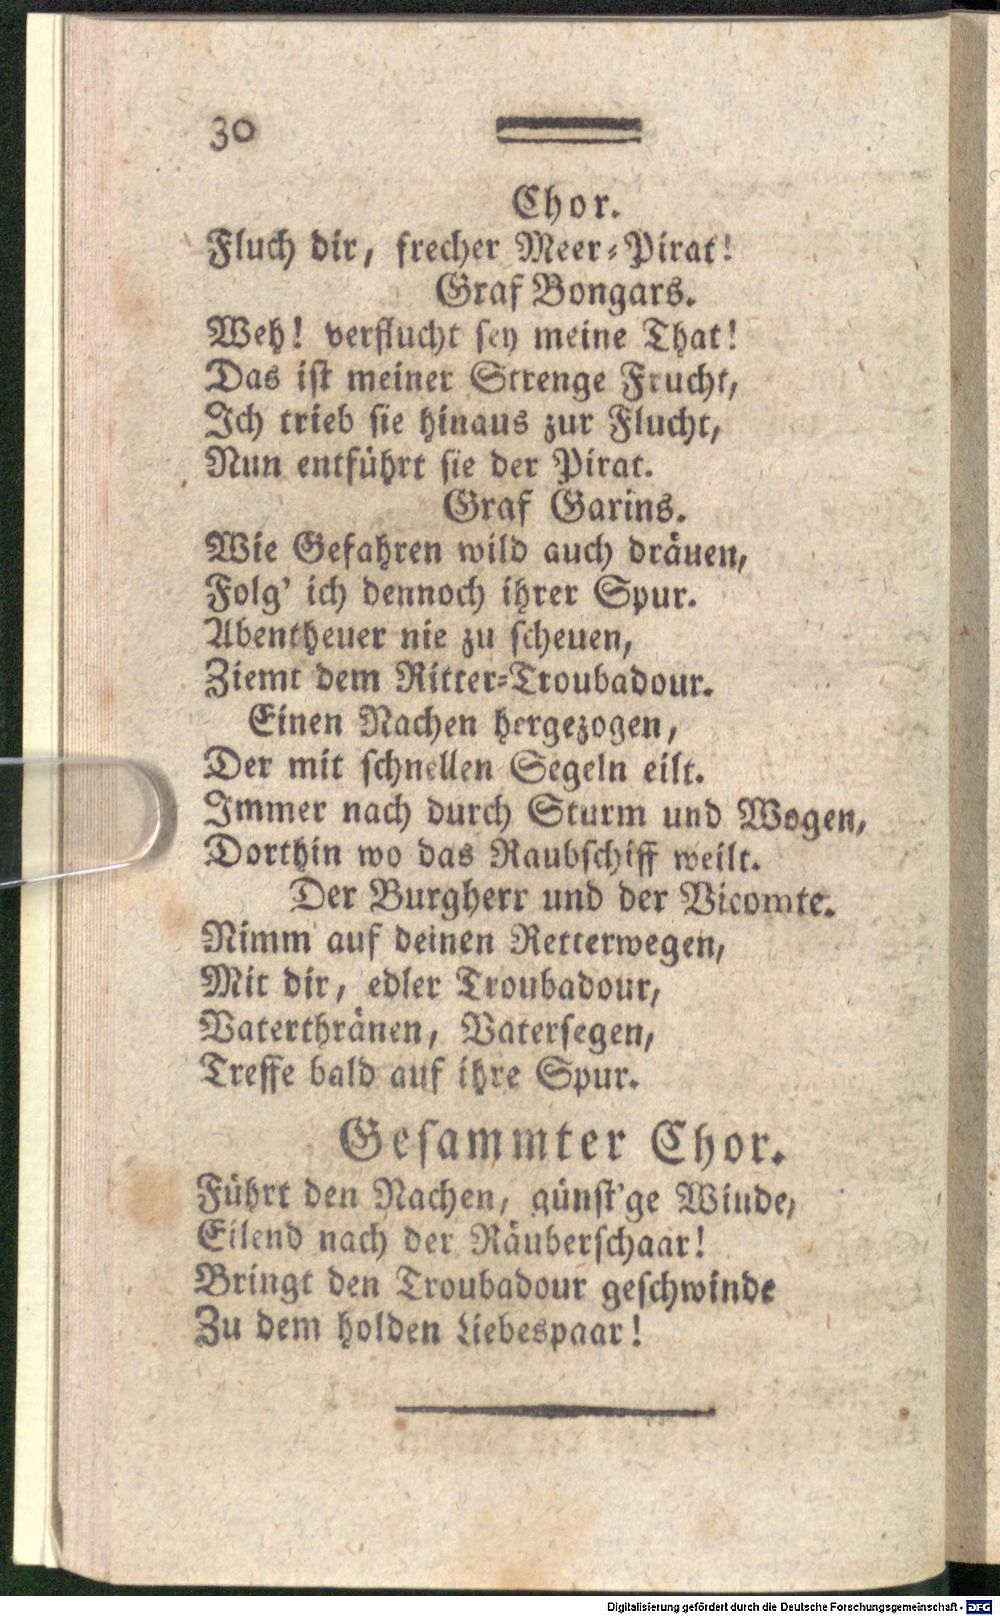 30
Chor.
Fluch dir, frecher Meer-Pirat!
Graf Bongars.
Weh! verflucht sey meine That!
Das ist meiner Strenge Frucht,
Ich trieb sie hinaus zur Flucht,
Nun entführt sie der Pirat.
Graf Garins.
Wie Gefahren wild auch dräuen,
Folg' ich dennoch ihrer Spur.
Abentheuer nie zu scheuen,
Ziemt dem Ritter-Troubadour.
Einen Nachen hergezogen,
Der mit schnellen Segeln eilt.
Immer nach durch Sturm und Wogen,
Dorthin wo das Raubschiff weilt.
Der Burgherr und der Vicomte.
Nimm auf deinen Retterwegen,
Mit dir, edler Troubadour,
Vaterthränen, Vatersegen,
Treffe bald auf ihre Spur.
Gesammter Chor.
Führt den Nachen, günst'ge Winde,
Eilend nach der Räuberschaar!
Bringt den Troubadour geschwinde
Zu dem holden Liebespaar!
Digitalisierung gefördert durch die Deutsche Forschungsgemeinschaft - DFG